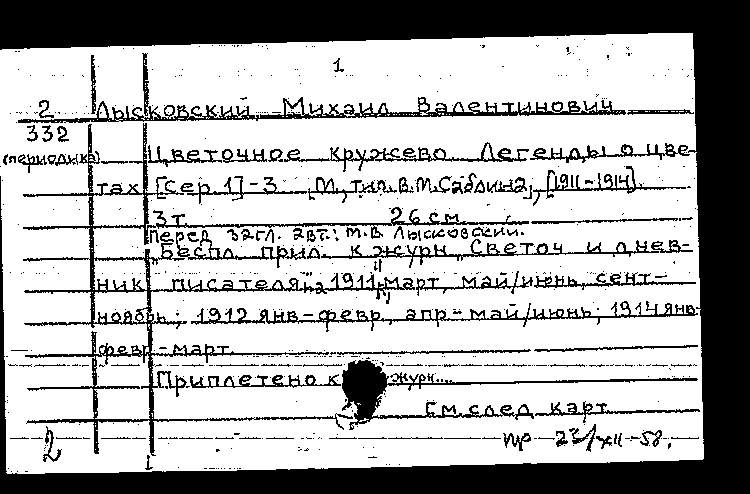 1
2 Лысковский, Михаил Валентинович
332
(периодика) Цветочное кружево. Легенды о цве-
тах [Сер. 1]-3 [М., тип. В.М. Саблина], [1911-1914].
3 т. 26 см.
Перед загл. 2 вт.: М.В. Лысковский.
"Беспл. прил. к журн. "Светоч и днев-
ник писателя" на 1911, март, май/июнь, сент-
ноябрь; 1912 янв-февр., апр-май/июнь; 1914 янв-
февр-март.
Приплетено к журн....
См. след. карт.
2 пр 23/XII-58.
1